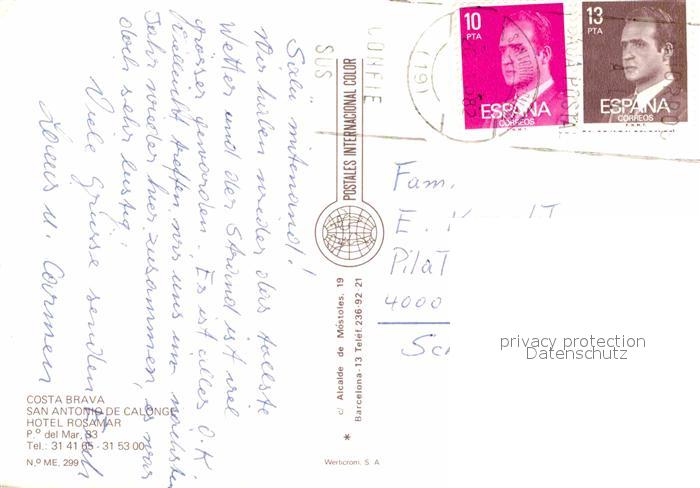 Salü mitenand!
Wir haben wieder das tollste
Wetter und der Strand ist viel
grösser geworden. Es ist alles O.K.
Vielleicht treffen wir uns im nächsten
Jahr wieder hier zusammen, es war
doch sehr lustig.
Viele Grüsse senden Euch
Louis u. Carmen
COSTA BRAVA
SAN ANTONIO DE CALONGE
HOTEL ROSAMAR
P.º del Mar, 33
Tel.: 31 41 65 - 31 53 00
N.º ME, 299
POSTALES INTERNACIONAL COLOR
c/ Alcalde de Móstoles, 19
Barcelona-13 Teléf. 236-92 21
Werticrom, S. A.
CONFIE
SUS
10
PTA
ESPAÑA
CORREOS
F.N.M.T.
13
PTA
ESPAÑA
CORREOS
F.N.M.T.
Fam.
E.
Pilat
4000
privacy protection
Datenschutz